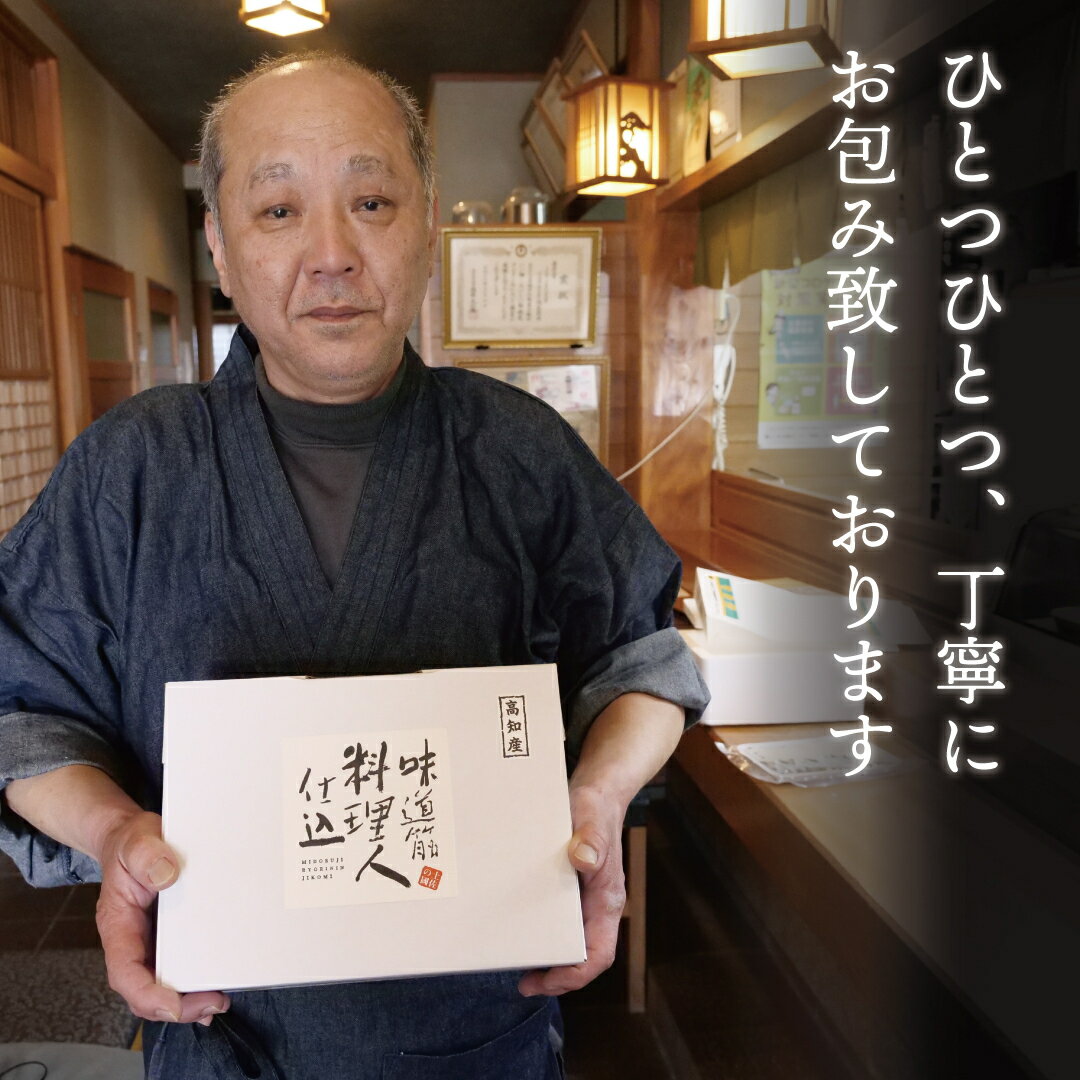 ひとつひとつ、丁寧に
お包み致しております
高知産
味道筋
料理人
仕込
MIDOSUJI
RYORININ
JIKOMI
土佐
の國
賞状